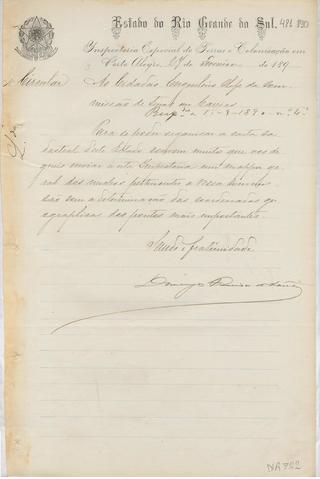 Estado do Rio Grande do Sul.
Inspectoria Especial de Terras e Colonisação em
Porto Alegre, de Fevereiro de 189
Circular Ao Cidadão Engenheiro Chefe da Com
missão de Terras em Caxias
Para se poder organisar a carta ca
dastral deste Estado convem muito que vos di
gneis enviar á esta Inspectoria um mappa ge
ral dos nucleos pertencentes a vossa
com a determinação das coordenadas ge
ographicas dos pontos mais importantes
Saude e fraternidade
Domingos